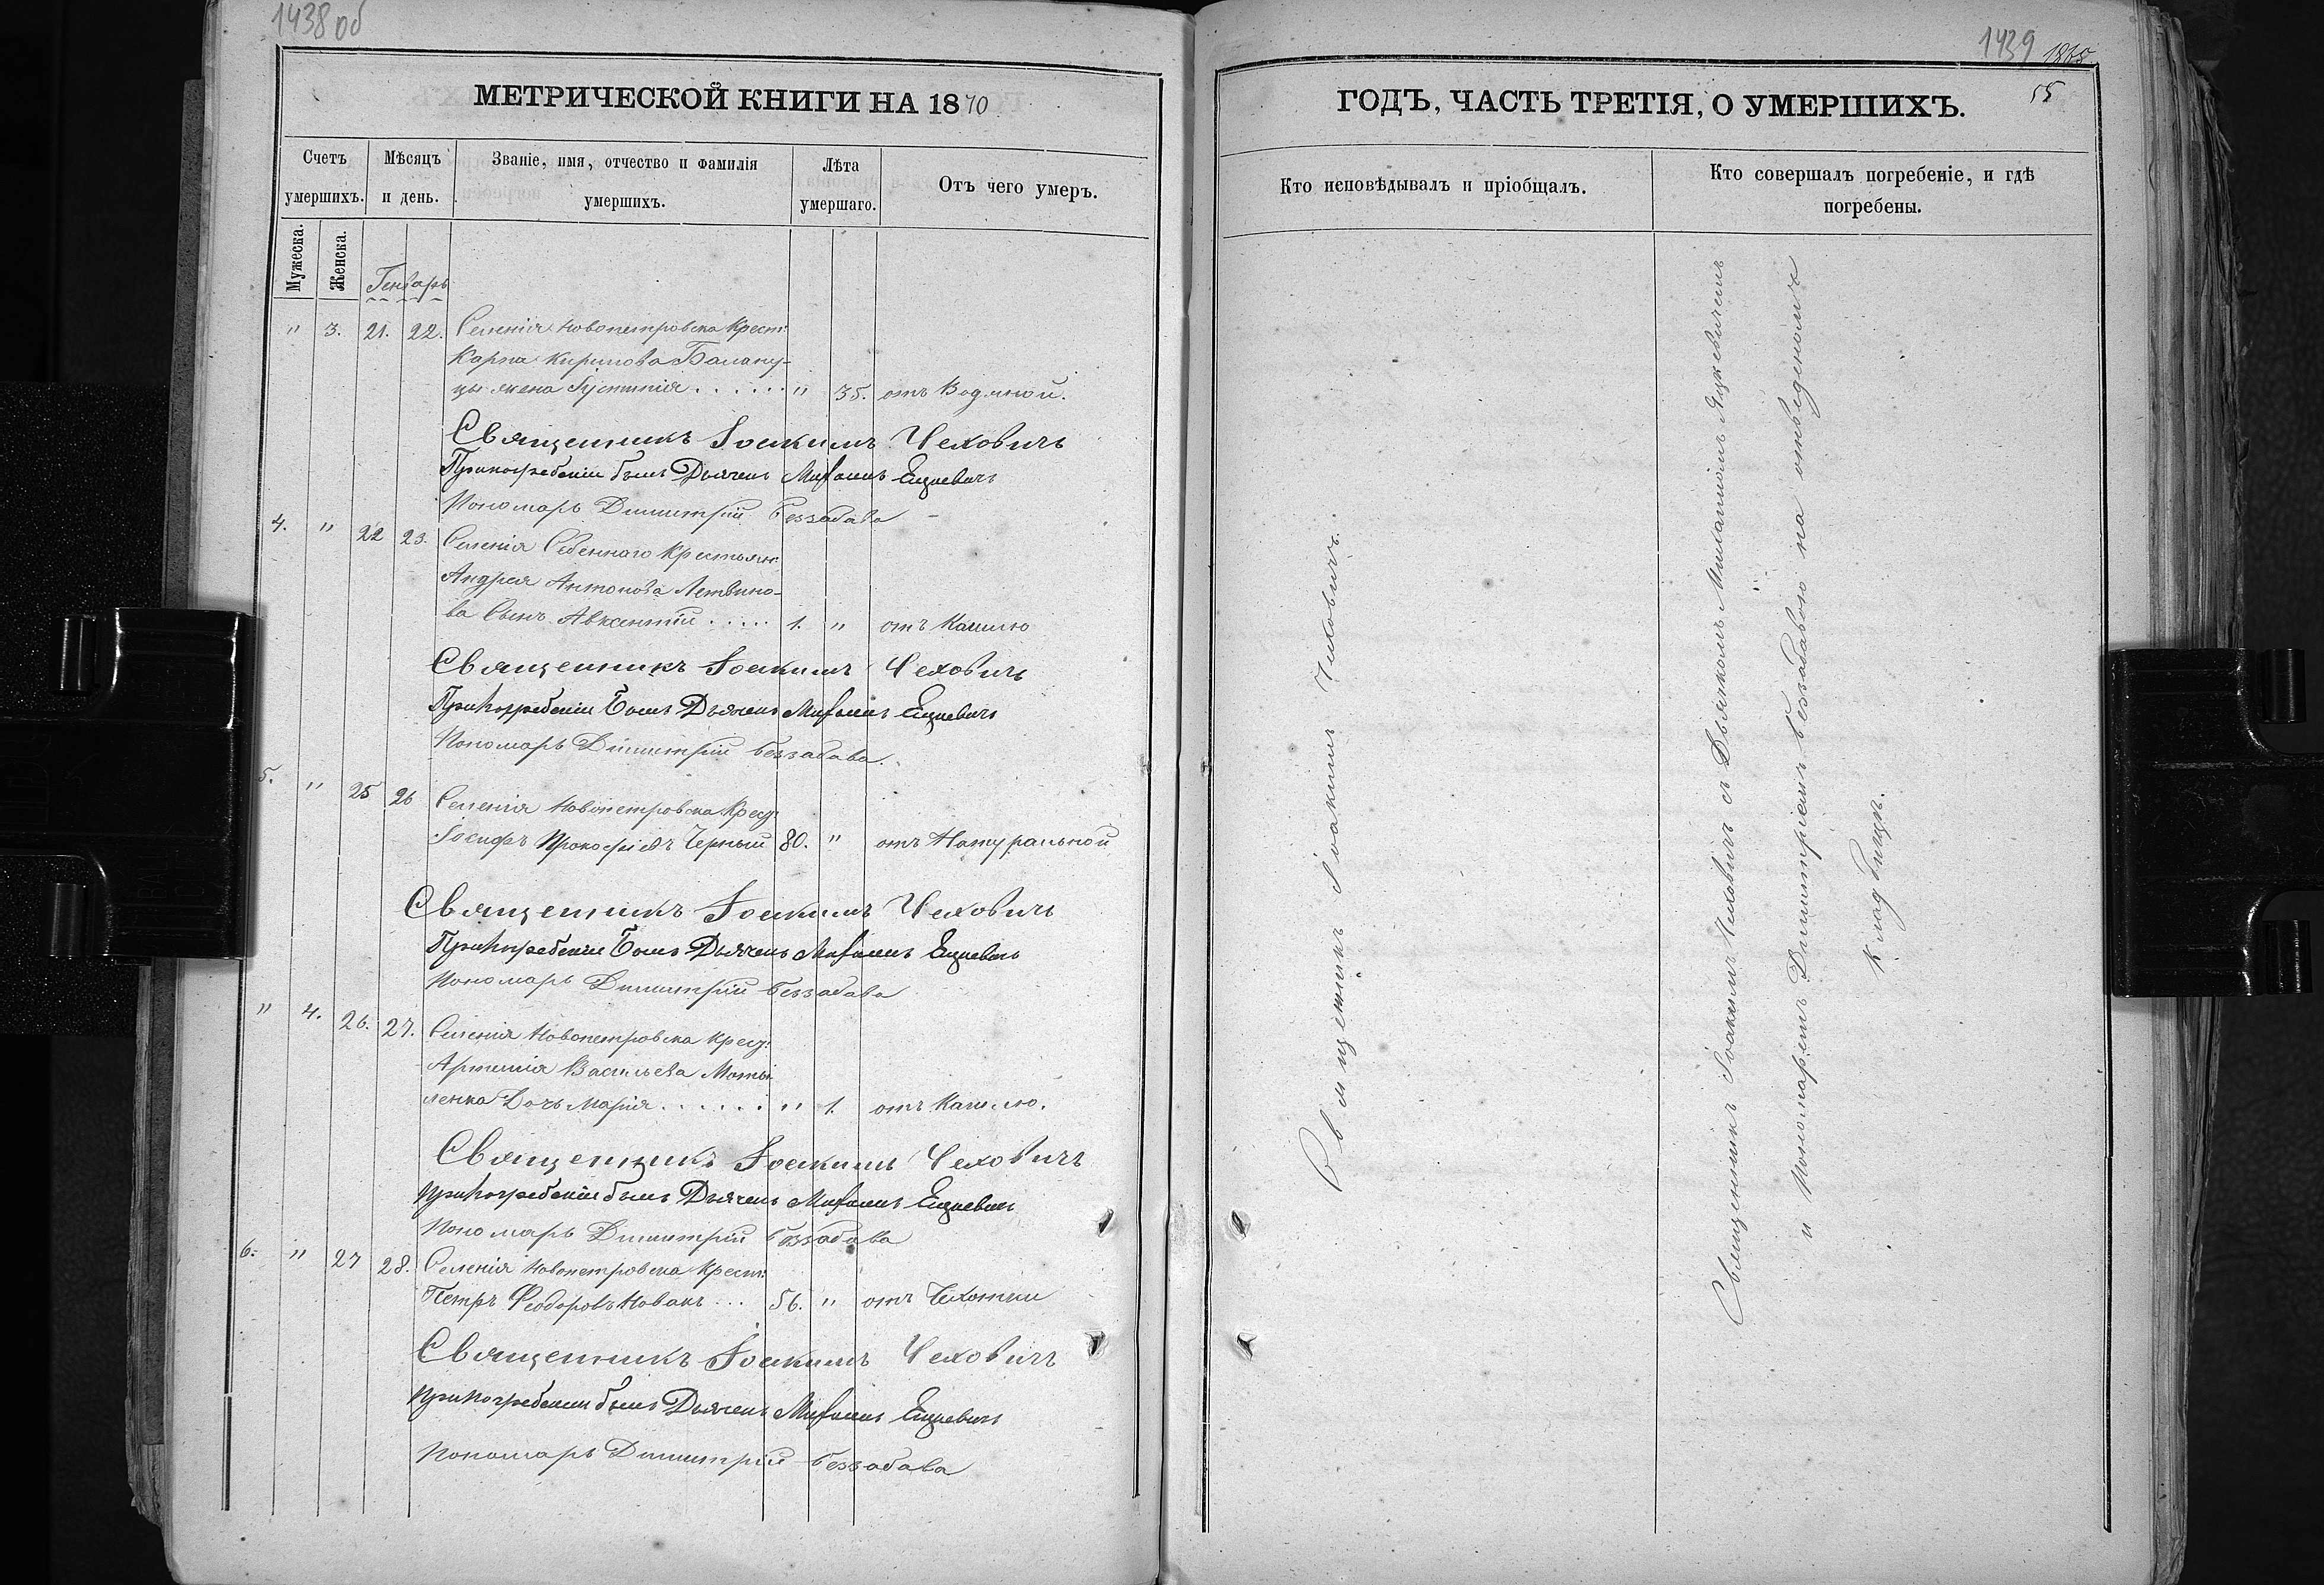 1438 об
МЕТРИЧЕСКОЙ КНИГИ НА 1870
Счетъ умершихъ.
Мѣсяцъ и день.
Званіе, имя, отчество и фамилія умершихъ.
Лѣта умершаго.
Отъ чего умеръ.
Мужеска.
Женска.
Генварь
" 3. 21. 22. Селенія Новопетровска Крест:
Карпа Кирилова Балану-
цы жена Іустинія . . . . . . " 35. отъ Водяной.
Священникъ Іоакимъ Чеховичъ
При погребеніи былъ Дьячекъ Михаилъ
Пономарь Димитрій Беззабава
4. " 22 23. Селенія Себеннаго Крестьян:
Андрея Антонова Летвино-
ва Сынъ Авксентій . . . . . 1. " отъ Кашлю
Священникъ Іоакимъ Чеховичъ
При погребеніи былъ Дьячекъ Михаилъ
Пономарь Димитрій Беззабава.
5. " 25 26 Селенія Новопетровска Крес:
Іосифъ Прокофіевъ Черный 80. " отъ Натуральной
Священникъ Іоакимъ Чеховичъ
При погребеніи былъ Дьячекъ Михаилъ
Пономарь Димитрій Беззабава
" 4. 26. 27. Селенія Новопетровска Крес:
Артемія Васильева
ленка Дочь Марія . . . . . . " 1. отъ Кашлю.
Священникъ Іоакимъ Чеховичъ
При погребеніи былъ Дьячекъ Михаилъ
Пономарь Димитрій Беззабава
6. " 27 28. Селенія Новопетровска Крест:
Петръ Феодоровъ Новакъ ... 56. " отъ Чахотки
Священникъ Іоакимъ Чеховичъ
При погребеніи былъ Дьячекъ Михаилъ
Пономарь Димитрій Беззабава
1439
55
ГОДЪ, ЧАСТЬ ТРЕТІЯ, О УМЕРШИХЪ.
Кто исповѣдывалъ и пріобщалъ.
Кто совершалъ погребеніе, и гдѣ
погребены.
Священникъ Іоакимъ Чеховичъ.
Священникъ Іоакимъ Чеховичъ съ Дьячкомъ Михаиломъ Яцкевичемъ
и Пономаремъ Димитріемъ Беззабавою на отведеномъ
кладбищѣ.